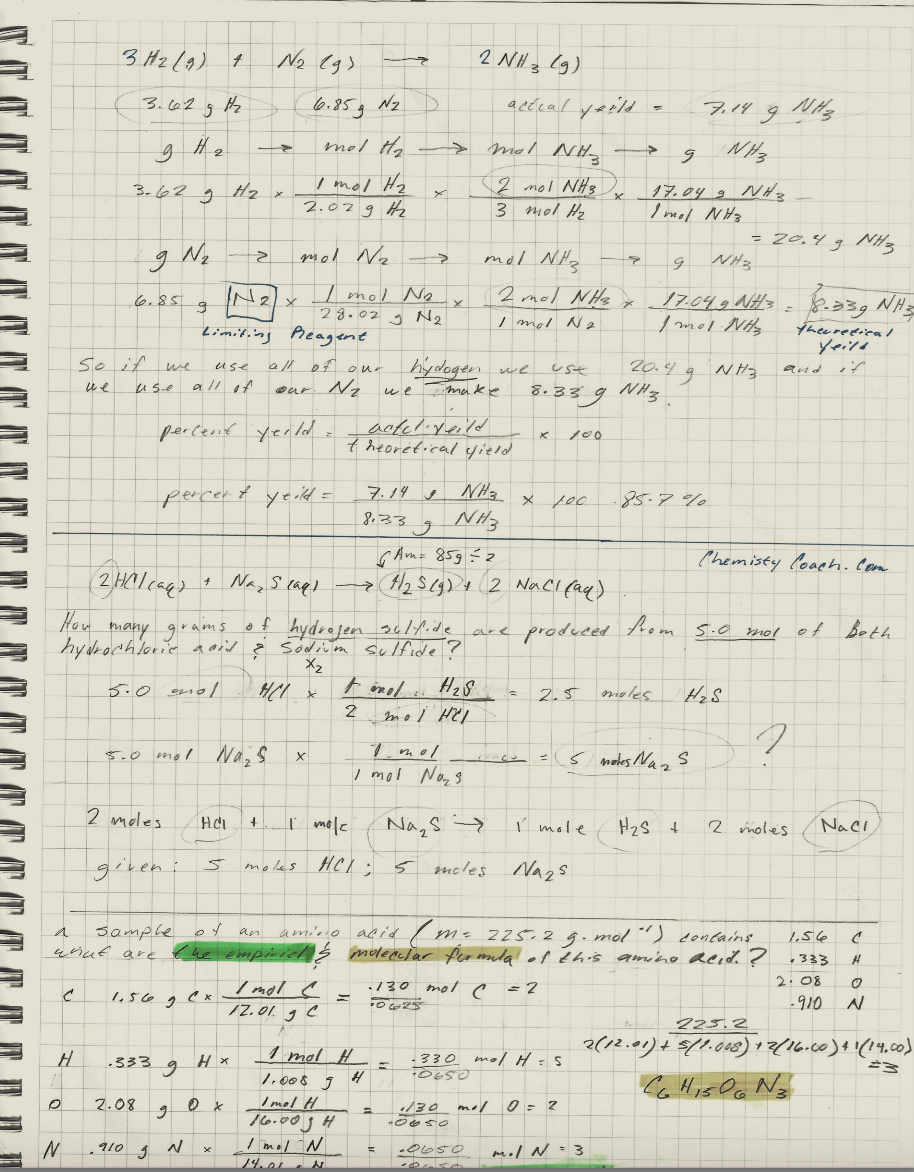 3H₂(g) + N₂(g) ⟶ 2NH₃(g)
3.62 g H₂ 6.85g N₂ actual yeild = 7.14 g NH₃
g H₂ → mol H₂ → mol NH₃ → g NH₃
3.62 g H₂ × 1 mol H₂ / 2.02 g H₂ × 2 mol NH₃ / 3 mol H₂ × 17.04 g NH₃ / 1 mol NH₃
= 20.4 g NH₃
g N₂ → mol N₂ → mol NH₃ → g NH₃
6.85 g N₂ × 1 mol N₂ / 28.02 g N₂ × 2 mol NH₃ / 1 mol N₂ × 17.04 g NH₃ / 1 mol NH₃ = 8.33g NH₃
Limiting Reagent theoretical yeild
So if we use all of our hydogen we use 20.4 g NH₃ and if
we use all of our N₂ we make 8.33 g NH₃.
percent yeild = actul yeild / theoretical yield × 100
percent yeild = 7.14 g NH₃ / 8.33 g NH₃ × 100 85.7 %
Am = 85g ÷ 2 Chemisty Coach.com
2HCl(aq) + Na₂S(aq) ⟶ H₂S(g) + 2 NaCl(aq)
How many grams of hydrogen sulfide are produced from 5.0 mol of Both
hydrochloric acid & Sodium sulfide?
×2
5.0 mol HCl × 1 mol H₂S / 2 mol HCl = 2.5 moles H₂S
5.0 mol Na₂S × 1 mol / 1 mol Na₂S = 5 moles Na₂S ?
2 moles HCl + 1 mole Na₂S → 1 mole H₂S + 2 moles NaCl
given: 5 moles HCl; 5 moles Na₂S
a sample of an amino acid (m = 225.2 g·mol⁻¹) contains 1.56 C
what are the empiricl & molecular formula of this amino acid.? .333 H
2.08 O
.910 N
C 1.56 g C × 1 mol C / 12.01 g C = .130 mol C / .0625 = 2
225.2 / 2(12.01) + 5(1.008) + 2(16.00) + 1(14.00)
= 3
H .333 g H × 1 mol H / 1.008 g H = .330 mol H / .0650 = 5
C₆H₁₅O₆N₃
O 2.08 g O × 1 mol H / 16.00 g H = .130 mol O / .0650 = 2
N .910 g N × 1 mol N / 14.01 g N = .0650 mol N / .0650 = 3